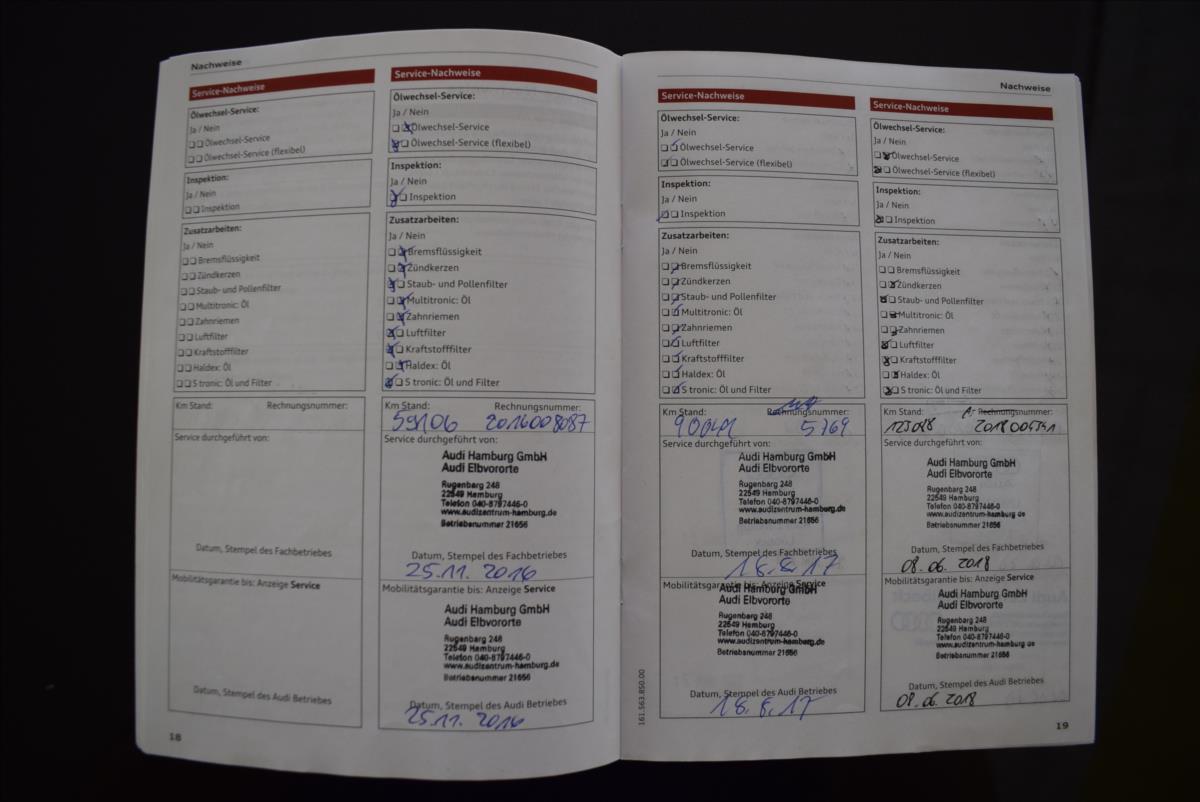 Nachweise
Service-Nachweise
Ölwechsel-Service:
Ja / Nein
Ölwechsel-Service
Ölwechsel-Service (flexibel)
Inspektion:
Ja / Nein
Inspektion
Zusatzarbeiten:
Ja / Nein
Bremsflüssigkeit
Zündkerzen
Staub- und Pollenfilter
Multitronic: Öl
Zahnriemen
Luftfilter
Kraftstofffilter
Haldex: Öl
S tronic: Öl und Filter
Km Stand: Rechnungsnummer:
Service durchgeführt von:
Datum, Stempel des Fachbetriebes
Mobilitätsgarantie bis: Anzeige Service
Datum, Stempel des Audi Betriebes
18
Service-Nachweise
Ölwechsel-Service:
Ja / Nein
Ölwechsel-Service
Ölwechsel-Service (flexibel)
Inspektion:
Ja / Nein
Inspektion
Zusatzarbeiten:
Ja / Nein
Bremsflüssigkeit
Zündkerzen
Staub- und Pollenfilter
Multitronic: Öl
Zahnriemen
Luftfilter
Kraftstofffilter
Haldex: Öl
S tronic: Öl und Filter
Km Stand: Rechnungsnummer:
59106 2016008087
Service durchgeführt von:
Audi Hamburg GmbH
Audi Elbvororte
Rugenbarg 248
22549 Hamburg
Telefon 040-8797446-0
www.audizentrum-hamburg.de
Betriebsnummer 21656
Datum, Stempel des Fachbetriebes
25.11. 2016
Mobilitätsgarantie bis: Anzeige Service
Audi Hamburg GmbH
Audi Elbvororte
Rugenbarg 248
22549 Hamburg
Telefon 040-8797446-0
www.audizentrum-hamburg.de
Betriebsnummer 21656
Datum, Stempel des Audi Betriebes
25.11. 2016
Nachweise
Service-Nachweise
Ölwechsel-Service:
Ja / Nein
Ölwechsel-Service
Ölwechsel-Service (flexibel)
Inspektion:
Ja / Nein
Inspektion
Zusatzarbeiten:
Ja / Nein
Bremsflüssigkeit
Zündkerzen
Staub- und Pollenfilter
Multitronic: Öl
Zahnriemen
Luftfilter
Kraftstofffilter
Haldex: Öl
S tronic: Öl und Filter
Km Stand: Rechnungsnummer:
5769
Service durchgeführt von:
Audi Hamburg GmbH
Audi Elbvororte
Rugenbarg 248
22549 Hamburg
Telefon 040-8797446-0
www.audizentrum-hamburg.de
Betriebsnummer 21656
Datum, Stempel des Fachbetriebes
18.8.17
Mobilitätsgarantie bis: Anzeige Service
Audi Hamburg GmbH
Audi Elbvororte
Rugenbarg 248
22549 Hamburg
Telefon 040-8797446-0
www.audizentrum-hamburg.de
Betriebsnummer 21656
Datum, Stempel des Audi Betriebes
18.8.17
161.563.850.00
Service-Nachweise
Ölwechsel-Service:
Ja / Nein
Ölwechsel-Service
Ölwechsel-Service (flexibel)
Inspektion:
Ja / Nein
Inspektion
Zusatzarbeiten:
Ja / Nein
Bremsflüssigkeit
Zündkerzen
Staub- und Pollenfilter
Multitronic: Öl
Zahnriemen
Luftfilter
Kraftstofffilter
Haldex: Öl
S tronic: Öl und Filter
Km Stand: Rechnungsnummer:
Service durchgeführt von:
Audi Hamburg GmbH
Audi Elbvororte
Rugenbarg 248
22549 Hamburg
Telefon 040-8797446-0
www.audizentrum-hamburg.de
Betriebsnummer 21656
Datum, Stempel des Fachbetriebes
08.06.2018
Mobilitätsgarantie bis: Anzeige Service
Audi Hamburg GmbH
Audi Elbvororte
Rugenbarg 248
22549 Hamburg
Telefon 040-8797446-0
www.audizentrum-hamburg.de
Betriebsnummer 21656
Datum, Stempel des Audi Betriebes
08.06.2018
19